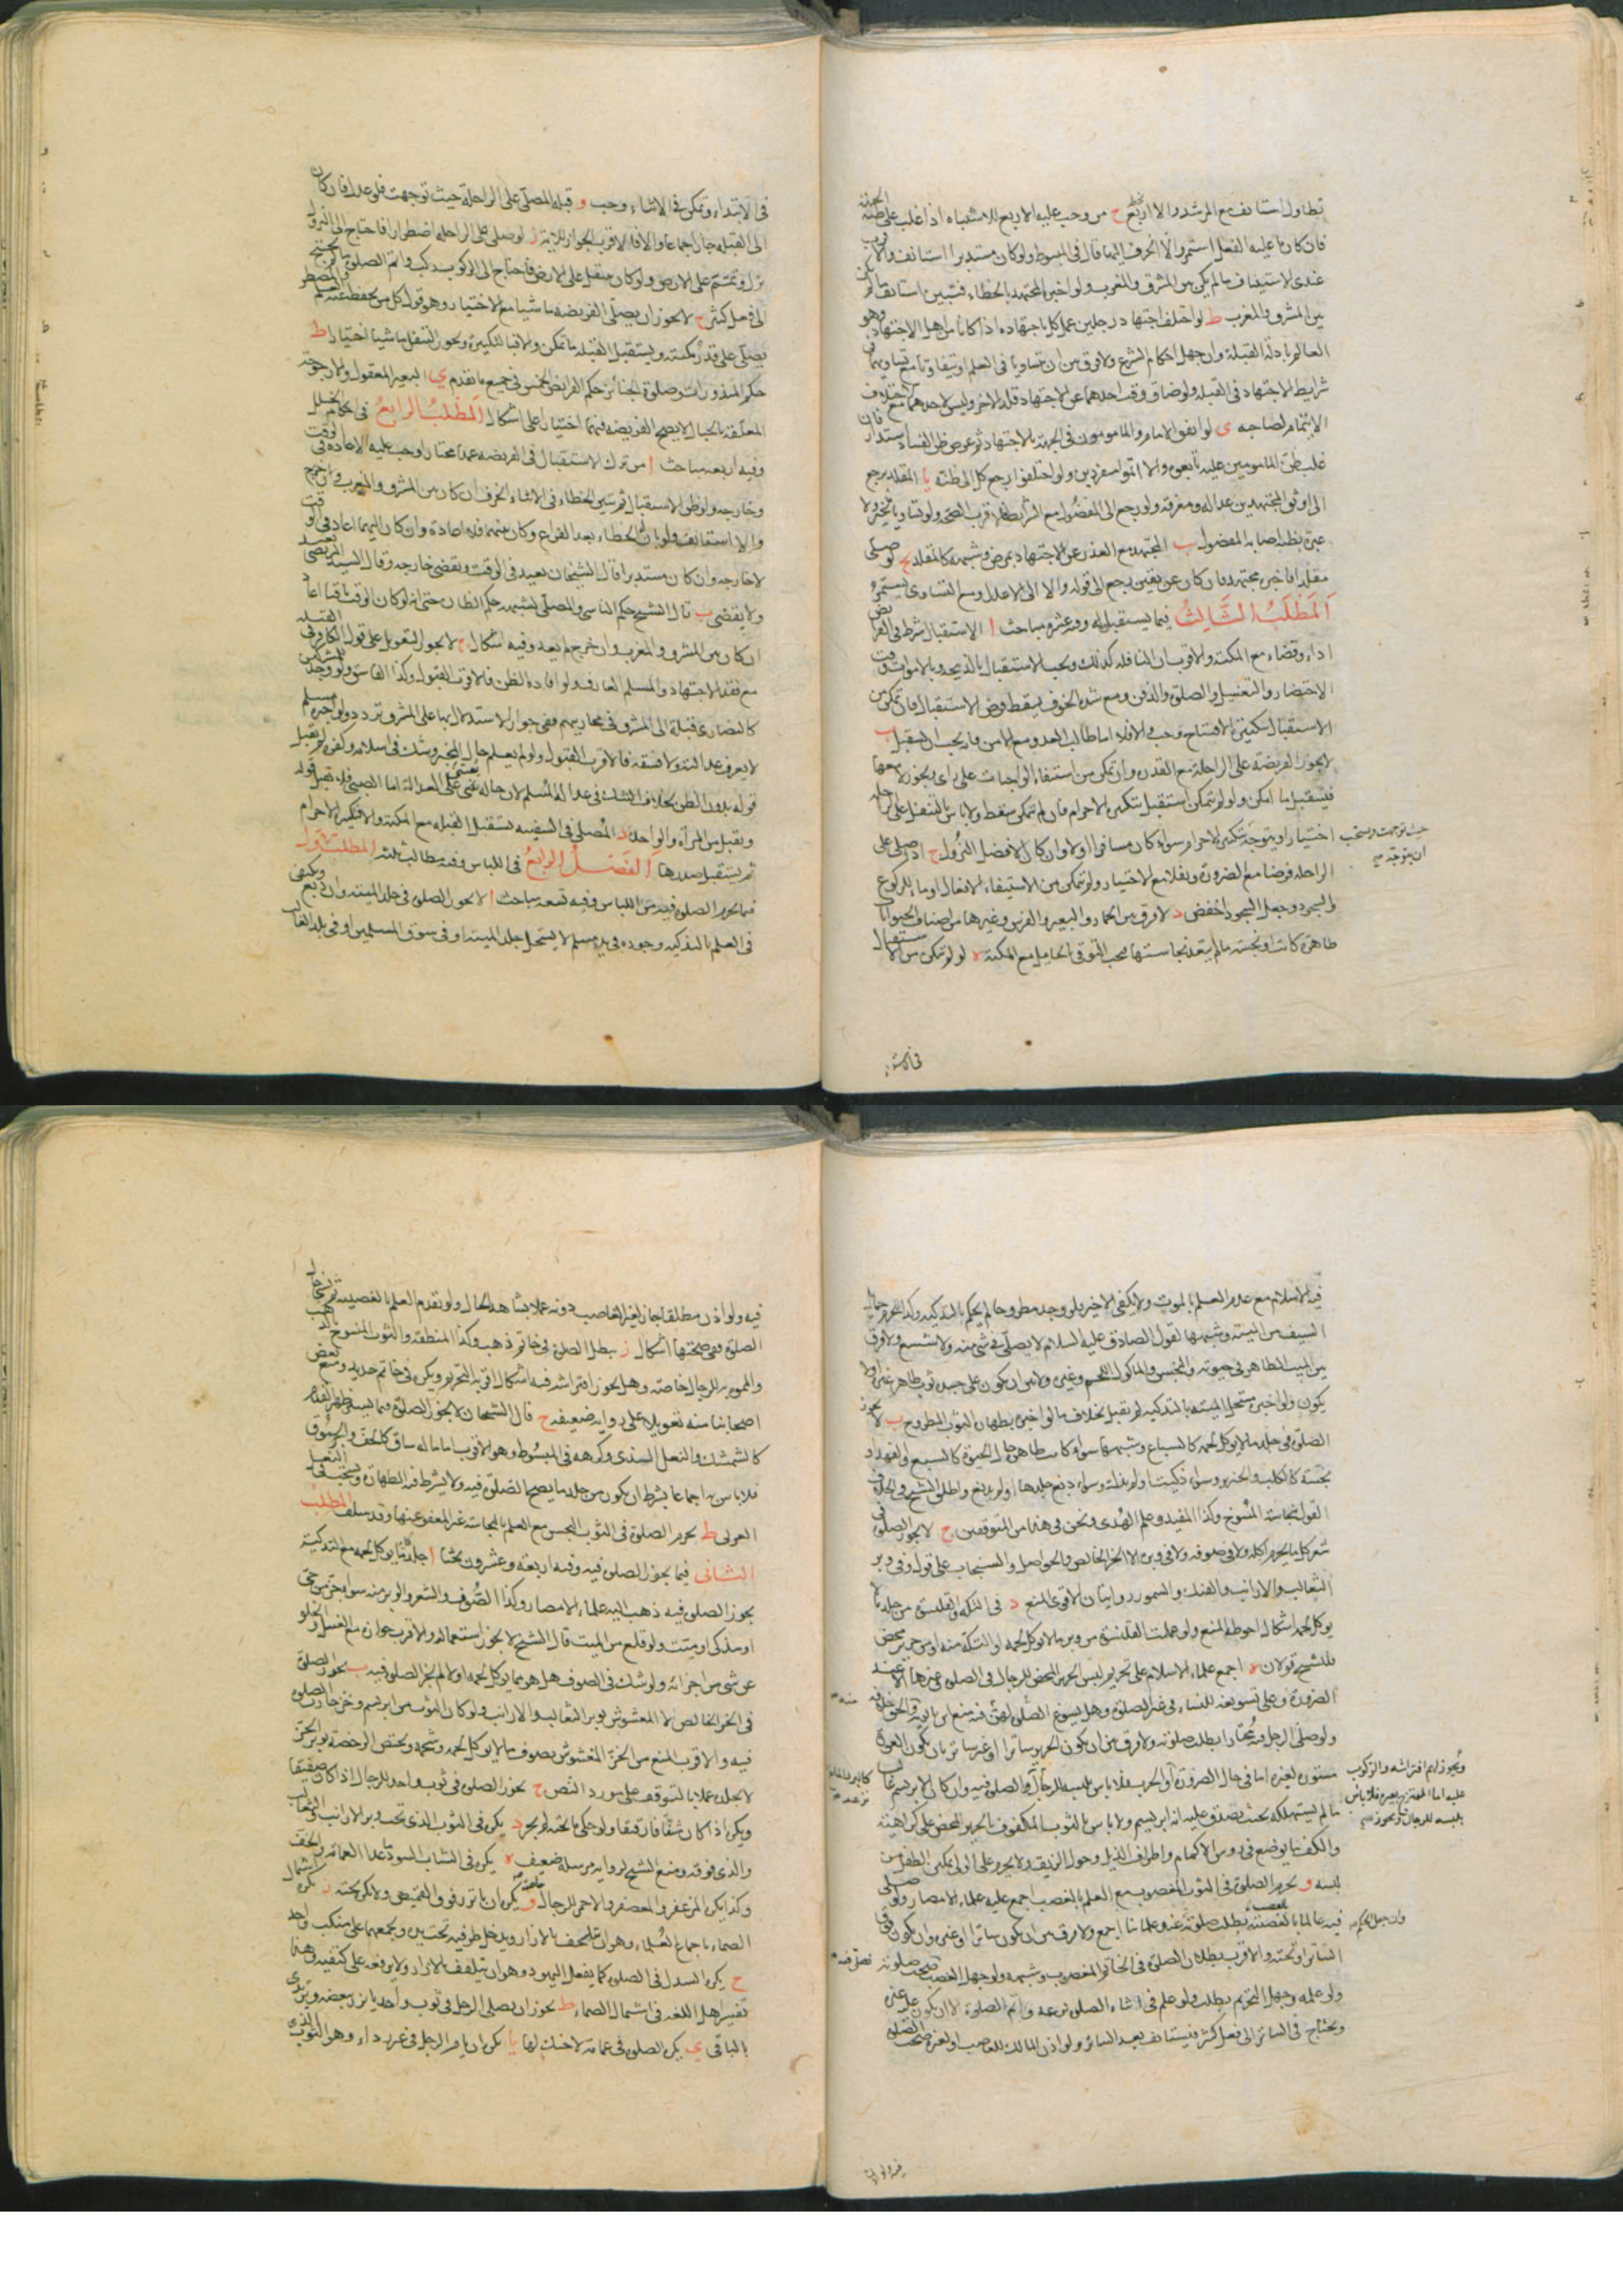 تطاول استانف مع المرشد والا اربع ح من وجب عليه الاربع للاشتباه اذا غلب على ظنه الجهة
فان كان ما عليه الفعل استمر والا انحرف اليها قال فى المبسوط ولو كان مستدبرا استانف والاقرب
عندى الاستيناف ما لم يكن بين المشرق والمغرب ولو اخبر المجتهد بالخطاء فتبين استانف ما لم يكن
بين المشرق والمغرب ط لو اختلف اجتهاد رجلين عمل كل باجتهاده اذا كانا من اهل الاجتهاد وهو
العالم بادلة القبلة وان جهل احكام الشرع ولا فرق بين ان يتساويا فى العلم او يتفاوتا مع تساويهما فى
شرايط الاجتهاد فى القبلة ولو ضاق وقت احدهما عن الاجتهاد قلد الاخر وليس لاحدهما مع الاختلاف
الايتمام لصاحبه ى لو اتفق الامام والمامومون فى الجهة بالاجتهاد ثم عرض ظن الفساد استدار فان
غلب ظن المامومين عليه تابعوه والا اتموا منفردين ولو اختلفوا رجع كل الى ظنه يا المقلد يرجع
الى اوثق المجتهدين عدالة ومعرفة ولو رجع الى المفضول مع الشرايط فالاقرب الصحة ولو تساويا تخير ولا
عبرة بظنه اصابة المفضول يب المجتهد مع العذر عن الاجتهاد بمرض وشبهه كالمقلد يج لو صلى
مقلدا فاخبره مجتهد فان كان عن يقين رجع الى قوله والا الى الاعدل ومع التساوى يستمر
المطلب الثالث فيما يستقبل له وفيه عشرة مباحث ا الاستقبال شرط فى الفرايض
اداء وقضاء مع المكنة والاقرب ان النافلة كذلك ويجب الاستقبال بالذبيحة وبالاموات وقت
الاحتضار والتغسيل والصلوة والدفن ومع شدة الخوف يسقط فرض الاستقبال فان تمكن من
الاستقبال بتكبيرة الافتتاح وجب والا فلا اما طالب العدو مع الامن فانه يجب ان يستقبل ب
لا يجوز الفريضة على الراحلة مع القدرة وان تمكن من استيفاء الواجبات على راى ويجوز لا معها
فيستقبل ما امكن ولو لم يتمكن استقبل بتكبيرة الاحرام فان لم يتمكن سقط ولا باس بالتنفل على الراحلة
اختيارا ويتوجه بتكبيرة الاحرام سواء كان مسافرا او لا وان كان الافضل النزول ج اذا صلى على
حيث توجهت ويستحب
ان يتوجه صح
الراحلة فرضا مع الضرورة ونفلا مع الاختيار ولم يتمكن من الاستيفاء للافعال اوما للركوع
والسجود وجعل السجود اخفض د لا فرق بين الحمار والبعير والفرس وغيرها من اصناف الحيوانات
طاهرة كانت او نجسة ما لم يتعد نجاستها فيجب التوقى بالحايل مع المكنة ه لو لم يتمكن من الاستقبال
فى الابتداء وتمكن فى الاثناء وجب و قبلة المصلى على الراحلة حيث توجهت فلو عدل فان كان
الى القبلة جاز اجماعا والا فالاقرب الجواز للاية ز لو صلى على الراحلة اضطرارا فاحتاج الى النزول
نزل وتمم على الارض ولو كان متنفل على الارض فاحتاج الى الركوب ركب واتم الصلوة ما لم يحتج
الى فعل كثير ح لا يجوز ان يصلى الفريضة ماشيا مع الاختيار وهو قول كل من يحفظ عنه العلم والمضطر
يصلى على قدر مكنته ويستقبل القبلة ما تمكن والا فبالتكبيرة ويجوز التنفل ماشيا اختيارا ط
حكم المنذورات وصلوة الجنائز حكم الفرائض الخمس فى جميع ما تقدم ى البعير المعقول والارجوحة
المعلقة بالحبال لا يصح الفريضة فيهما اختيارا على اشكال المطلب الرابع فى احكام الخلل
وفيه اربعة مباحث ا من ترك الاستقبال فى الفريضة عمدا مختارا وجب عليه الاعادة فى الوقت
وخارجه ولو ظن الاستقبال ثم تبين الخطاء فى الاثناء انحرف ان كان بين المشرق والمغرب
والا استانف ولو بان الخطاء بعد الفراغ وكان بينهما فلا اعادة وان كان اليهما اعاد فى الوقت
لا خارجه وان كان مستدبرا قال الشيخان يعيد فى الوقت ويقضى خارجه وقال السيد المرتضى يعيد
ولا يقضى ب قال الشيخ حكم الناسى والمصلى لشبهة حكم الظان حتى انه لو كان الوقت باقيا اعاد
ان كان بين المشرق والمغرب وان خرج لم يعد وفيه اشكال ج لا يجوز التعويل على قول الكافر فى القبلة
مع فقد الاجتهاد والمسلم العارف ولو افاده الظن فالاقرب القبول وكذا الفاسق ولو وجد للمشركين
كالنصارى قبلة الى المشرق فى محاريبهم ففى جواز الاستدلال بها على المشرق تردد ولو اخبره مسلم
لا يعرف عدالته ولا فسقه فالاقرب القبول ولو لم يعلم حال المخبر وشك فى اسلامه وكفره لم يقبل
قوله بدون الظن بخلاف الشك فى عدالة المسلم لان حاله يبنى على العدالة اما الصبى فلا يقبل قوله
ويقبل من المراة والواحد د المصلى فى السفينة يستقبل القبلة مع المكنة والا فبتكبيرة الاحرام
ثم يستقبل صدرها الفصل الرابع فى اللباس وفيه مطالب ثلثة المطلب الاول
فيما يحرم الصلوة فيه من اللباس وفيه تسعة مباحث ا لا يجوز الصلوة فى جلد الميتة وان دبغ ويكفى
فى العلم بالتذكية وجوده فى يد مسلم لا يستحل جلد الميتة او فى سوق المسلمين او فى بلد الغالب
فيه الاسلام مع عدم العلم بالموت ولا يكفى الاخير فلو وجد مطروحا لم يحكم بالتذكية وكذا يحرم حمايل
السيف من الميتة وشبهها لقول الصادق عليه السلام لا يصلى فى شئ منه ولا شسع ولا فرق
بين الميت الطاهر فى حيوته والنجس والماكول اللحم وغيره ولا بين ان يكون على جسده ثوب طاهر غيره او لا
يكون ولو اخبر مستحل الميتة بالتذكية لم يقبل بخلاف ما لو اخبره بطهارة الثوب المطروح ب لا يجوز
الصلوة فى جلد ما لا يوكل لحمه كالسباع وشبهها سواء كانت طاهرة حال الحيوة كالسبع والفهد او
نجسة كالكلب والخنزير وسواء ذكيت او لم يذك وسواء دبغ جلدها او لم يدبغ واطلق الشيخ فى الخلاف
القول بنجاسة المسوخ وكذا المفيد وعلم الهدى ونحن فى هذا من المتوقفين ج لا يجوز الصلوة فى
شعر كل ما يحرم اكله ولا فى صوفه ولا فى وبره الا الخز الخالص والحواصل والسنجاب على قول وفى وبر
الثعالب والارانب والفنك والسمور روايتان الاقوى المنع د فى التكة والقلنسوة من جلد ما لا
يوكل لحمه اشكال احوطه المنع ولو عملت القلنسوة من وبر ما لا يوكل لحمه او التكة منه او من حرير محض
فللشيخ قولان ه اجمع علماء الاسلام على تحريم لبس الحرير المحض للرجال فى الصلوة وغيرها الا عند
الضرورة وعلى تسويغه للنساء فى غير الصلوة وهل يسوغ الصلوة لهن فيه منع ابن بابويه
ولو صلى الرجل فيه مختارا بطلت صلوته ولا فرق بين ان يكون الحرير ساترا او غير ساتر بان يكون العورة
مستورة بغيره اما فى حال الضرورة او الحرب فلا باس بلبسه للرجال والصلوة فيه وان كان الابريسم غالب
ويجوز لهم افتراشه والركوب
عليه اما الممتزج بغيره فلا باس
بلبسه للرجال ويجوز صح
ما لم يستهلكه بحيث يصدق عليه انه ابريسم ولا باس بالثوب المكفوف بالحرير المحض على كراهية
والكف ما يوضع فى روس الاكمام واطراف الذيل وحول الزيق ولا يحرم على الولى تمكين الطفل من
لبسه و تحرم الصلوة فى الثوب المغصوب مع العلم بالغصب اجمع عليه علماء الامصار ولو صلى
فيه عالما بالغصبية بطلت صلوته عند علمائنا اجمع ولا فرق بين ان يكون ساترا او غيره وان يكون فوق
وان جهل الحكم صح
الساتر او تحته والاقرب بطلان الصلوة فى الخاتم المغصوب وشبهه ولو جهل الغصب صحت صلوته
ولو علمه وجهل التحريم بطلت ولو علم فى اثناء الصلوة نزعه واتم الصلوة الا ان يكون عليه غيره
ويحتاج فى الساتر الى فعل كثير فيستانف بعد الساتر ولو اذن المالك للغاصب او لغيره صحت الصلوة
فيه ولو اذن مطلقا جاز لغير الغاصب دونه عملا بشاهد الحال ولو تقدم العلم بالغصبية ثم نسى حال
الصلوة ففى صحتها اشكال ز يبطل الصلوة فى خاتم ذهب وكذا المنطقة والثوب المنسوج بالذهب
والمموه به للرجال خاصة وهل يجوز افتراشه فيه اشكال اقربه التحريم ويكره فى خاتم حديد ومنع بعض
اصحابنا منه تعويلا على رواية ضعيفة ح قال الشيخان لا يجوز الصلوة فيما يستر ظهر القدم
كالشمشك والنعل السندى وكرهه فى المبسوط وهو الاقرب اما ما له ساق كالخف والجرموق
فلا باس به اجماعا بشرط ان يكون من جلد ما يصح الصلوة فيه ولا يشترط فيه الطهارة ويستحب فى النعل
العربى ط تحرم الصلوة فى الثوب النجس مع العلم بالنجاسة غير المعفو عنها وقد سلف المطلب
الثانى فيما يجوز الصلوة فيه وفيه اربعة وعشرون بحثا ا جلد ما يوكل لحمه مع التذكية
يجوز الصلوة فيه ذهب اليه علماء الامصار وكذا الصوف والشعر والوبر منه سواء جز من حى
او مذكى او ميت ولو قلع من الميت قال الشيخ لا يجوز استعماله والاقرب جوازه مع الغسل والخلو
عن شئ من اجزائه ولو شك فى الصوف هل هو مما يوكل لحمه او لا لم يجز الصلوة فيه ب يجوز الصلوة
فى الخز الخالص لا المغشوش بوبر الثعالب والارانب ولو كان الثوب من ابريسم وخز جازت الصلوة
فيه والاقرب المنع من الخز المغشوش بصوف ما لا يوكل لحمه وشحمه وتختص الرخصة بوبر الخز
لا بجلده عملا بالتوقف على مورد النص ج يجوز الصلوة فى ثوب واحد للرجال اذا كان صفيقا
ويكره اذا كان شفافا رقيقا ولو حكى ما تحته لم يجز د يكره فى الثوب الذى تحت وبر الارانب والثعالب
والذى فوقه ومنع الشيخ لرواية مرسلة ضعيف ه يكره فى الثياب السود ما عدا العمامة والخف
وكذا يكره المزعفر والمعصفر والاحمر للرجال خاصة و يكره ان ياتزر فوق القميص ولا يكره تحته ز يكره اشتمال
الصماء باجماع العلماء وهو ان يلتحف بالازار ويدخل طرفيه تحت يده ويجمعهما على منكب واحد
ح يكره السدل فى الصلوة كما يفعل اليهود وهو ان يتلفف بالازار ولا يرفعه على كتفيه وهذا
تفسير اهل اللغة فى اشتمال الصماء ط يجوز ان يصلى الرجل فى ثوب واحد ياتزر ببعضه ويرتدى
بالباقى ى يكره الصلوة فى عمامة لا حنك لها يا يكره ان يام الرجل فى غير رداء وهو الثوب الذى